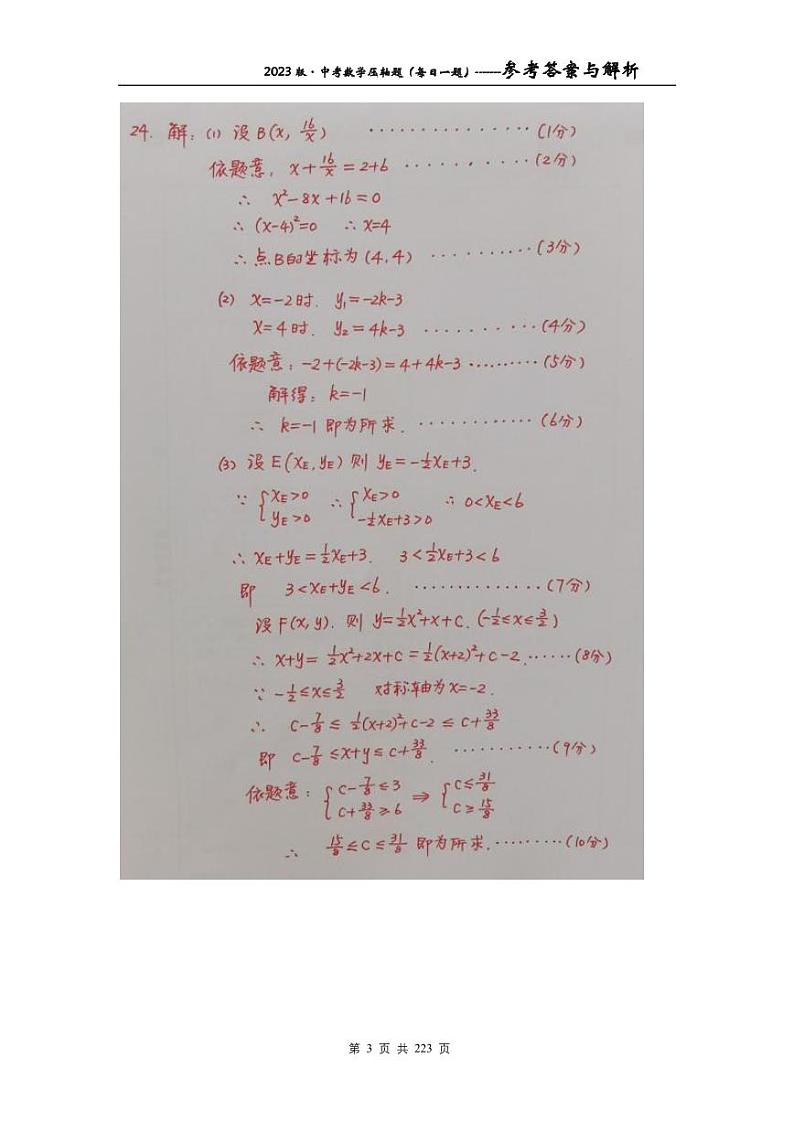 2023 版·中考数学压轴题（每日一题）------参考答案与解析
24. 解：(1) 设 B(x, 16/x) ·············· (1分)
依题意，x+16/x=2+6 ·········· (2分)
∴ x²-8x+16=0
∴ (x-4)²=0 ∴ x=4
∴ 点B的坐标为 (4,4) ·········· (3分)
(2) x=-2时. y₁=-2k-3
x=4时. y₂=4k-3 ·········· (4分)
依题意：-2+(-2k-3)=4+4k-3 ·········· (5分)
解得：k=-1
∴ k=-1 即为所求. ············ (6分)
(3) 设 E(xE, yE) 则 yE=-½xE+3.
∵ { xE>0 yE>0 ∴ { xE>0 -½xE+3>0 ∴ 0<xE<6
∴ xE+yE=½xE+3. 3<½xE+3<6
即 3<xE+yE<6. ············· (7分)
设 F(x,y). 则 y=½x²+x+c. (-½≤x≤3/2)
∴ x+y=½x²+2x+c=½(x+2)²+c-2 ······ (8分)
∵ -½≤x≤3/2 对称轴为x=-2.
∴ c-7/8≤½(x+2)²+c-2≤c+33/8
即 c-7/8≤x+y≤c+33/8. ··········· (9分)
依题意：{ c-7/8≤3 c+33/8≥6 ⇒ { c≤31/8 c≥15/8
∴ 15/8≤c≤31/8 即为所求. ········· (10分)
第 3 页 共 223 页